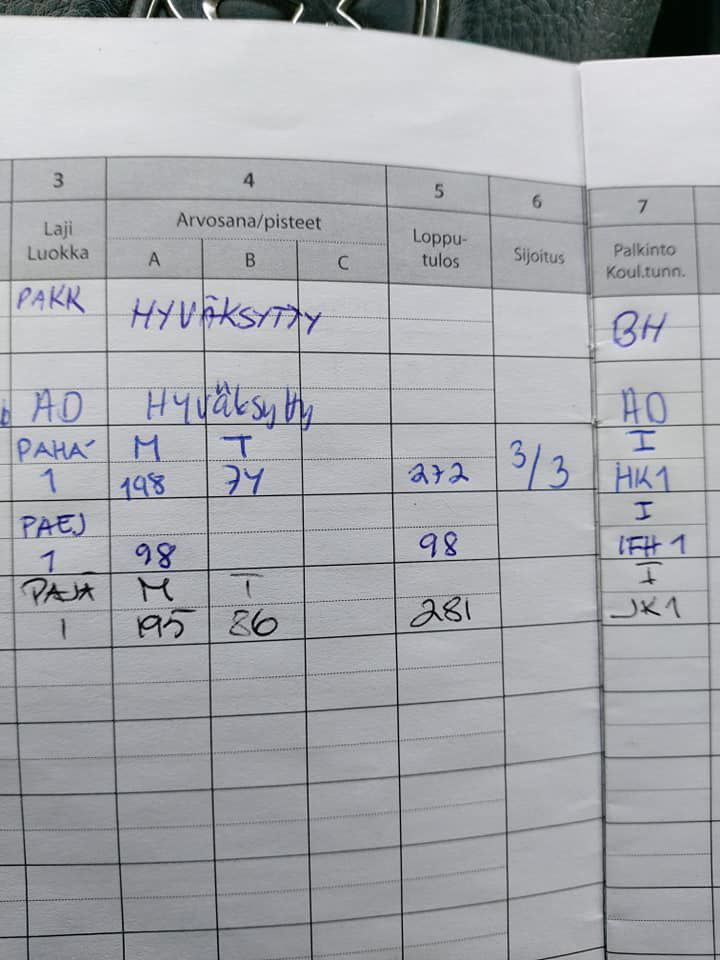 3 4 5 6 7
Laji Luokka Arvosana/pisteet Loppu-tulos Sijoitus Palkinto Koul.tunn.
A B C
PAKK HYVÄKSYTTY BH
AD Hyväksytty AD
PAHA M T I
1 198 74 272 3/3 HK1
PAEJ I
1 98 98 IFH 1
PAJÄ M T I
1 195 86 281 JK1